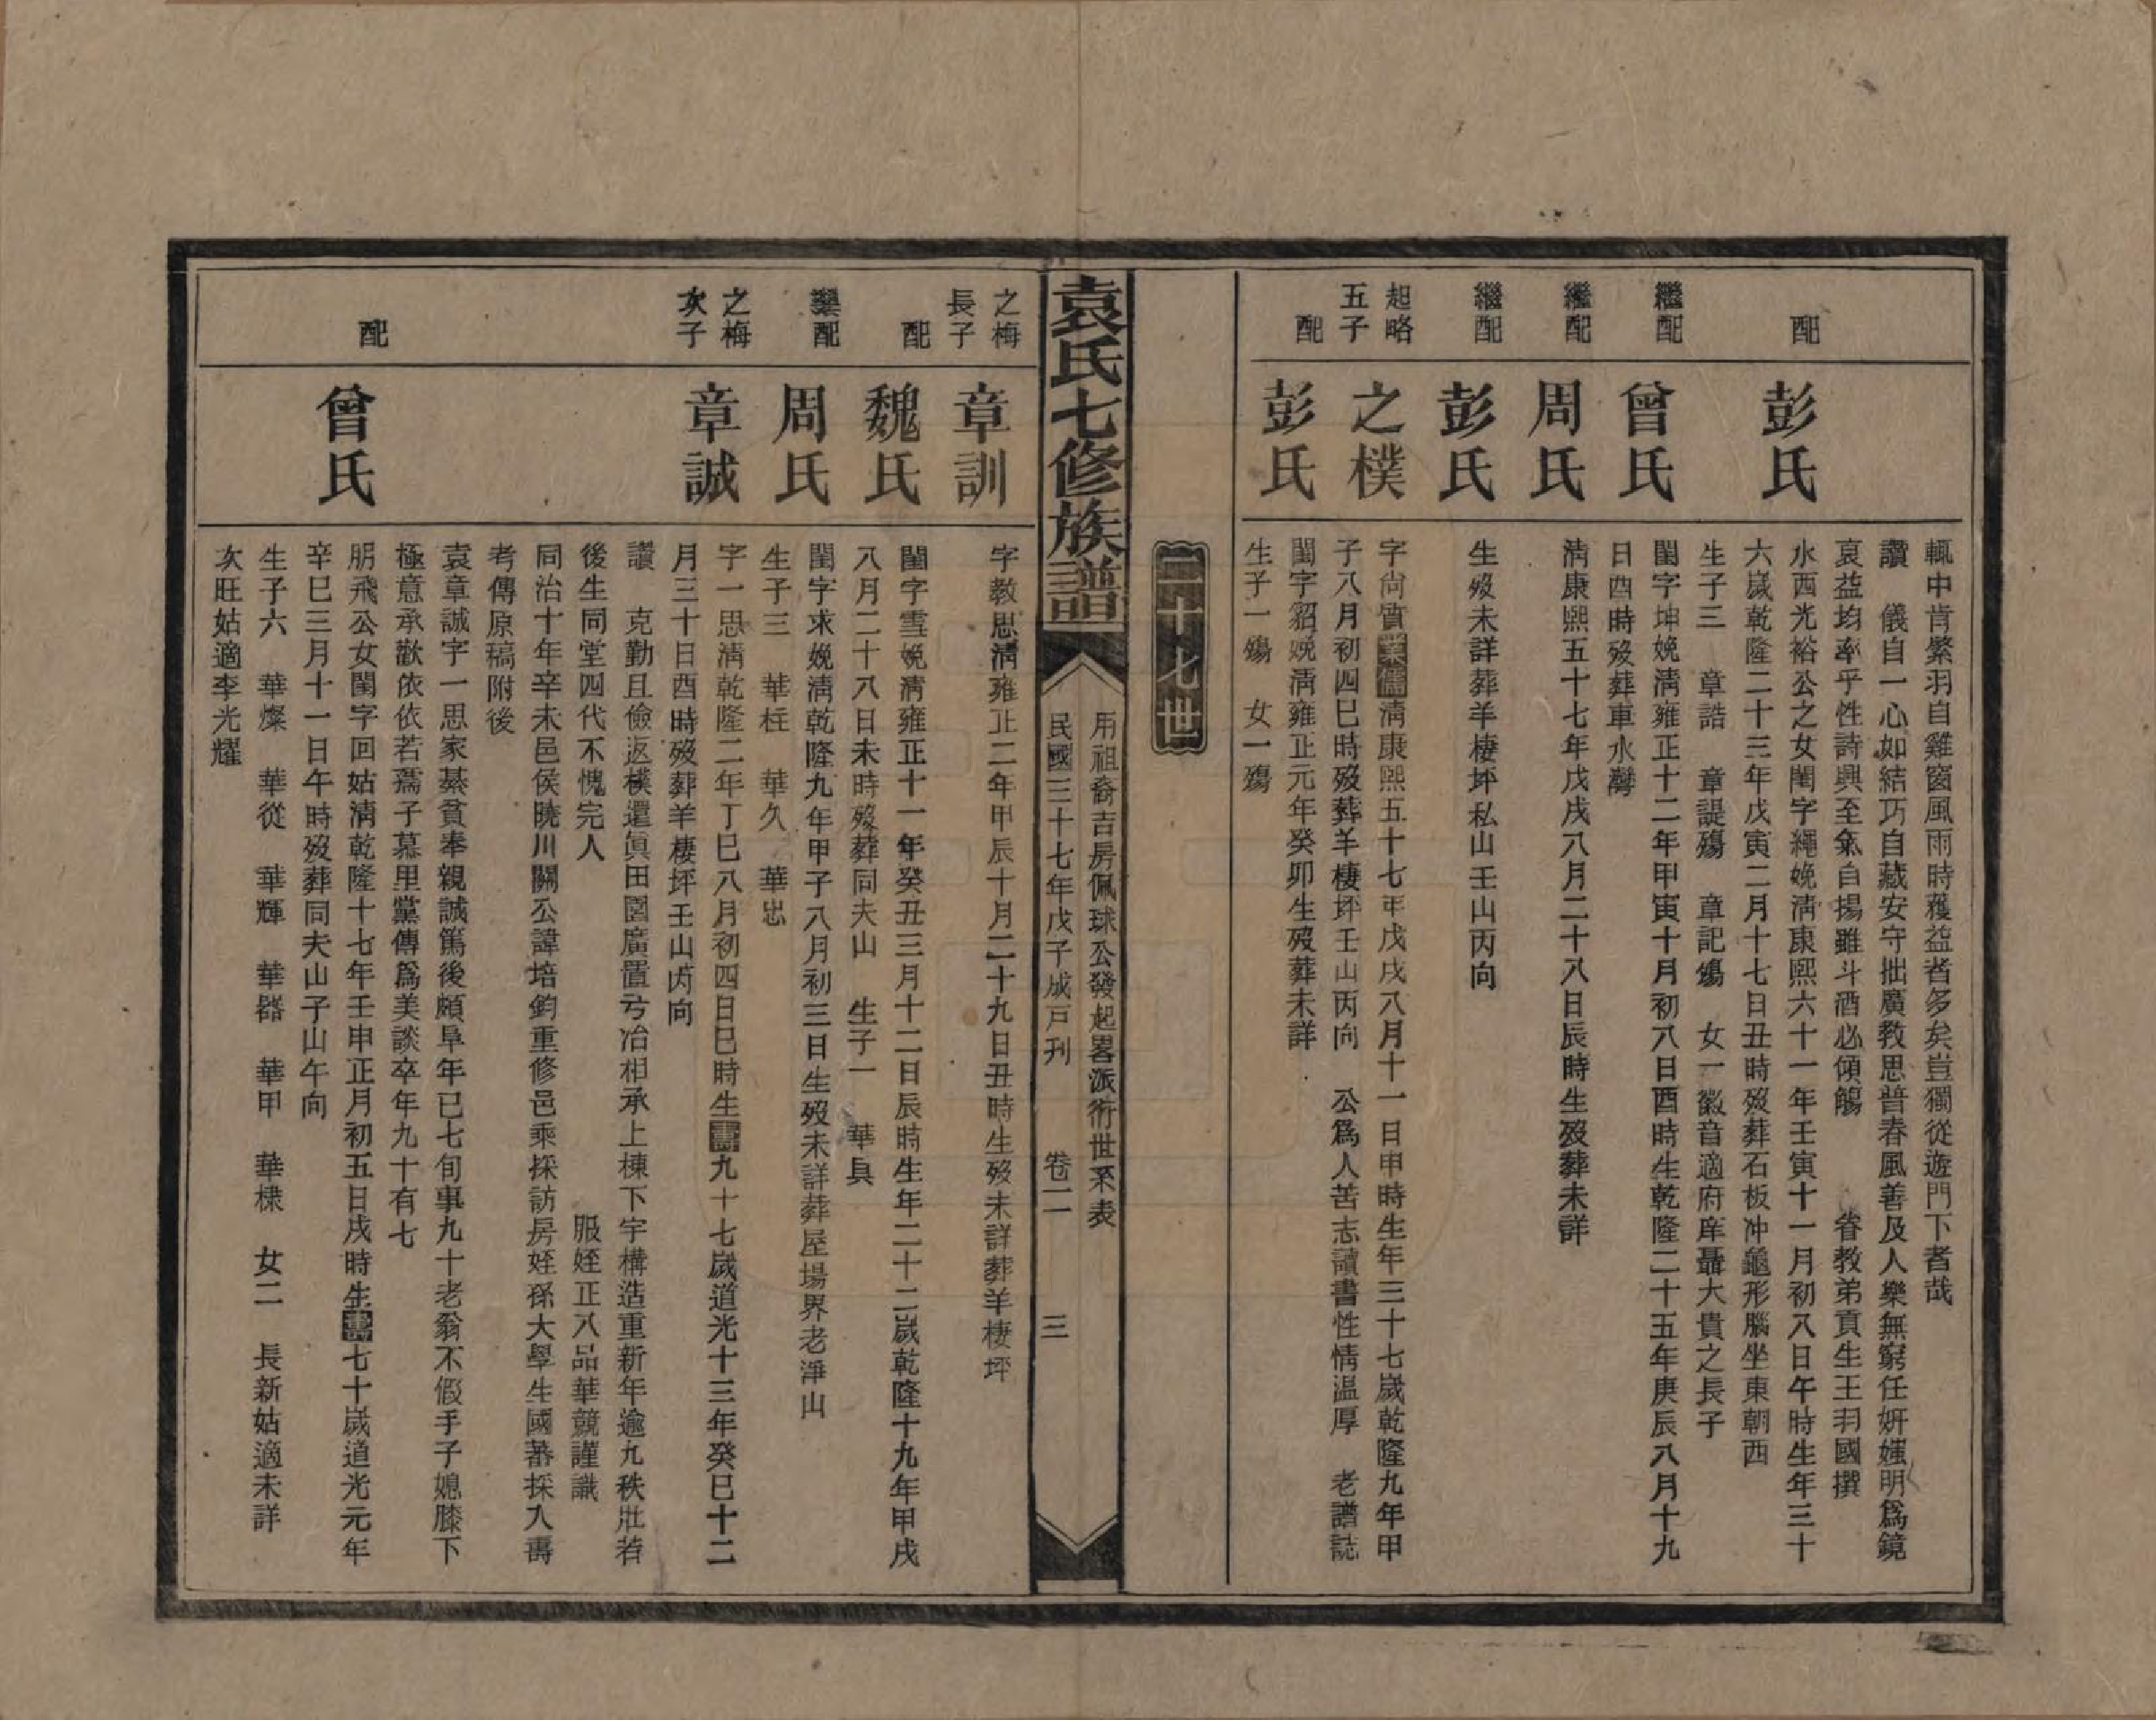 輒中肯綮羽自雞窗風雨時獲益者多矣豈獨從遊門下者哉
讚　儀自一心如結巧自藏安守拙廣教思普春風善及人樂無窮任妍媸明爲鏡
裒益均率乎性詩興至氣自揚雖斗酒必傾觴　　　眷教弟貢生王玥國撰
配
彭氏
水西光裕公之女閨字繩娩淸康熙六十一年壬寅十一月初八日午時生年三十
六歲乾隆二十三年戊寅二月十七日丑時歿葬石板冲龜形腦坐東朝西
生子三　章誥　章諟殤　章記殤　女一徽音適府庠聶大貴之長子
繼配
曾氏
閨字坤娩淸雍正十二年甲寅十月初八日酉時生乾隆二十五年庚辰八月十九
日酉時歿葬車水灣
繼配
周氏
淸康熙五十七年戊戌八月二十八日辰時生歿葬未詳
繼配
彭氏
生歿未詳葬羊棲坪私山壬山丙向
起略
五子
之樸
字尚質業儒淸康熙五十七年戊戌八月十一日申時生年三十七歲乾隆九年甲
子八月初四巳時歿葬羊棲坪壬山丙向　公爲人苦志讀書性情温厚　老譜誌
配
彭氏
閨字貂娩淸雍正元年癸卯生歿葬未詳
生子一殤　女一殤
二十七世
袁氏七修族譜
用祖裔吉房佩球公發起畧派衍世系表
民國三十七年戊子成戸刊　　卷二　　三
之梅
長子
章訓
字教思淸雍正二年甲辰十月二十九日丑時生歿未詳葬羊棲坪
配
魏氏
閨字雪娩淸雍正十一年癸丑三月十二日辰時生年二十二歲乾隆十九年甲戌
八月二十八日未時歿葬同夫山　生子一　華具
繼配
周氏
閨字求娩淸乾隆九年甲子八月初三日生歿未詳葬屋場界老淨山
生子三　華柱　華久　華忠
之梅
次子
章誠
字一思淸乾隆二年丁巳八月初四日巳時生壽九十七歲道光十三年癸巳十二
月三十日酉時歿葬羊棲坪壬山丙向
讚　克勤且儉返樸還眞田園廣置弓冶相承上棟下宇構造重新年逾九秩壯若
後生同堂四代不愧完人　　　　　　　　　　　服姪正八品華競謹識
同治十年辛未邑侯曉川關公諱培鈞重修邑乘採訪房姪孫大學生國蕃採入壽
考傳原稿附後
袁章誠字一思家綦貧奉親誠篤後頗阜年已七旬事九十老翁不假手子媳膝下
極意承歡依依若孺子慕里黨傳爲美談卒年九十有七
配
曾氏
朋飛公女閨字回姑淸乾隆十七年壬申正月初五日戌時生壽七十歲道光元年
辛巳三月十一日午時歿葬同夫山子山午向
生子六　華燦　華從　華輝　華器　華甲　華樣　女二　長新姑適未詳
次旺姑適李光耀